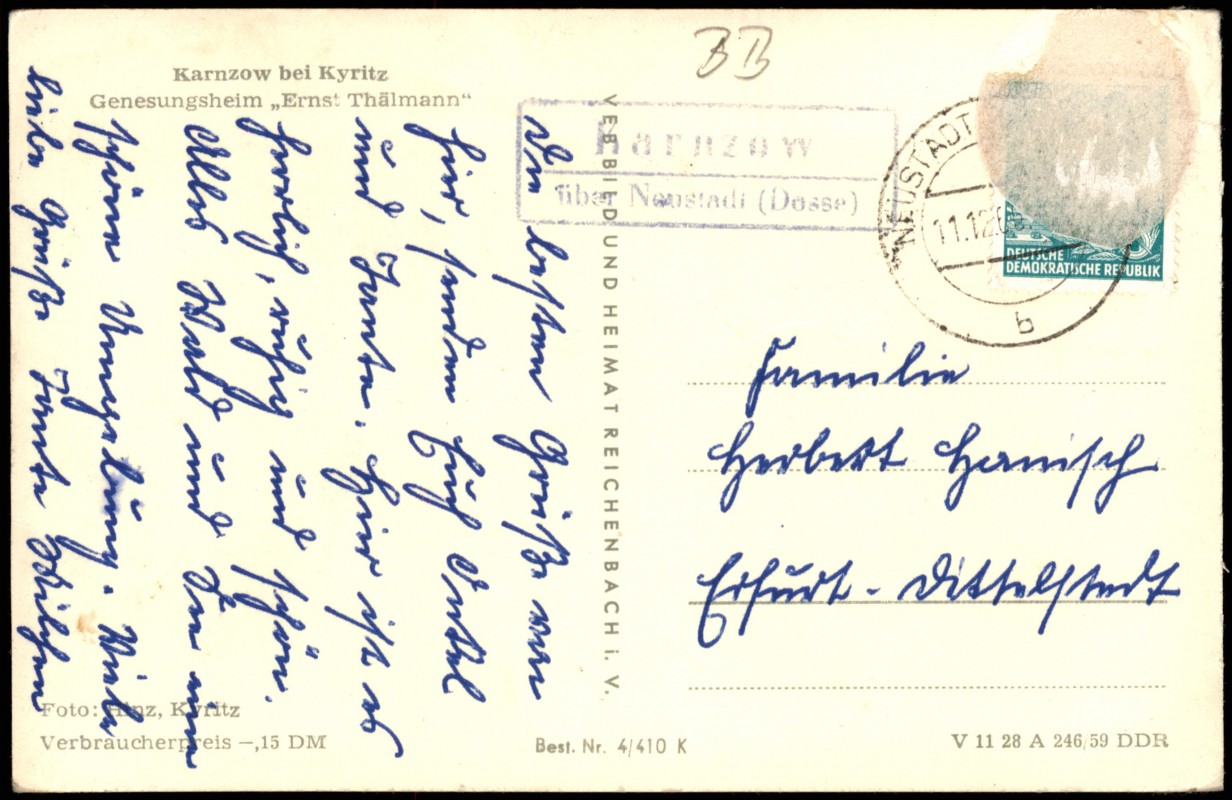 BB
Karnzow bei Kyritz
Genesungsheim „Ernst Thälmann“
Karnzow
über Neustadt (Dosse)
NEUSTADT
11.12.60
b
DEUTSCHE
DEMOKRATISCHE REPUBLIK
Die besten Grüße von
hier, senden Euch Onkel
und Tante. Hier ist es
herrlich, ruhig und schön.
Alles Wald und See eine
schöne Umgebung. Viele
liebe Grüße Tante
VEB BILD UND HEIMAT REICHENBACH i. V.
Familie
Herbert Hanisch
Erfurt - Dittelstedt
Foto: Hinz, Kyritz
Verbraucherpreis –,15 DM
Best. Nr. 4/410 K
V 11 28 A 246/59 DDR